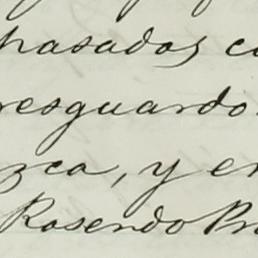 hasados, co
resguardo
zca, y en
Rosendo Pr